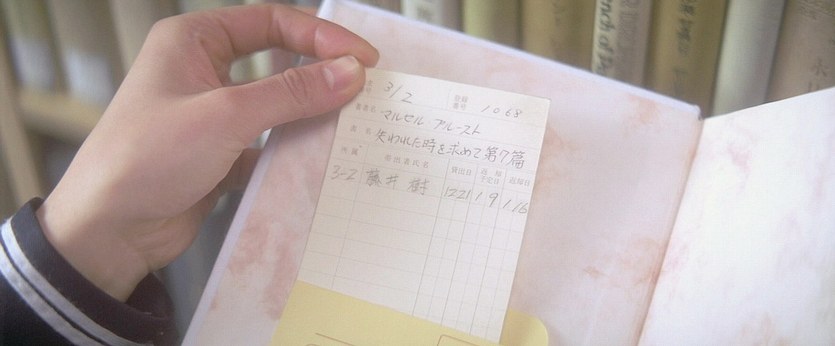 312 登録番号 1068
著者名 マルセル プルースト
書名 失われた時を求めて第7篇
所属 貸出者氏名 貸出日 返却予定日 返却日
3-2 藤井樹 1221 1 9 1 16